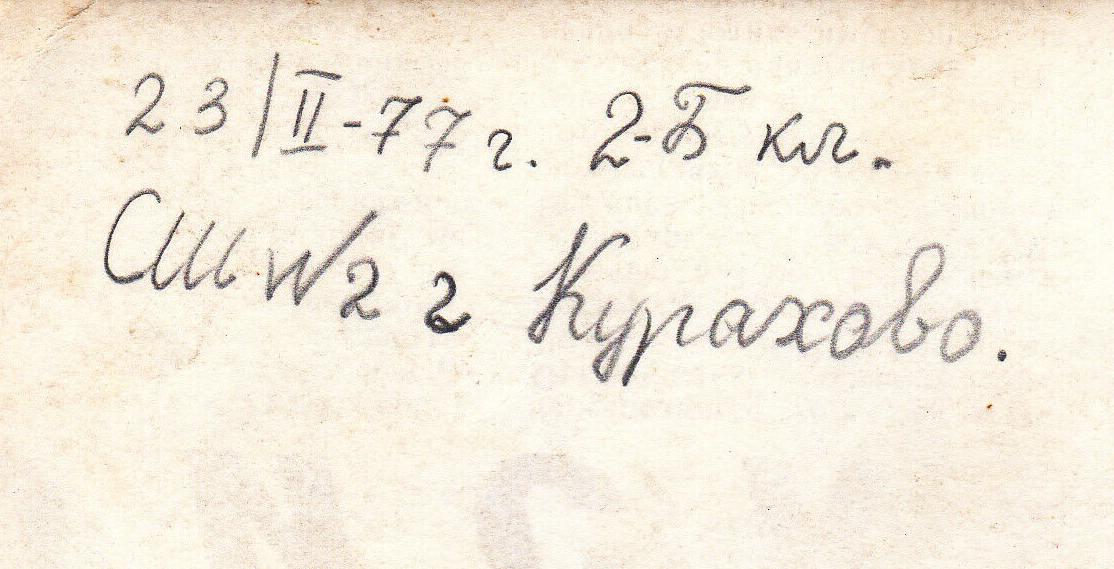 23/II-77г. 2-Б кл.
СШ N2 г Курахово.